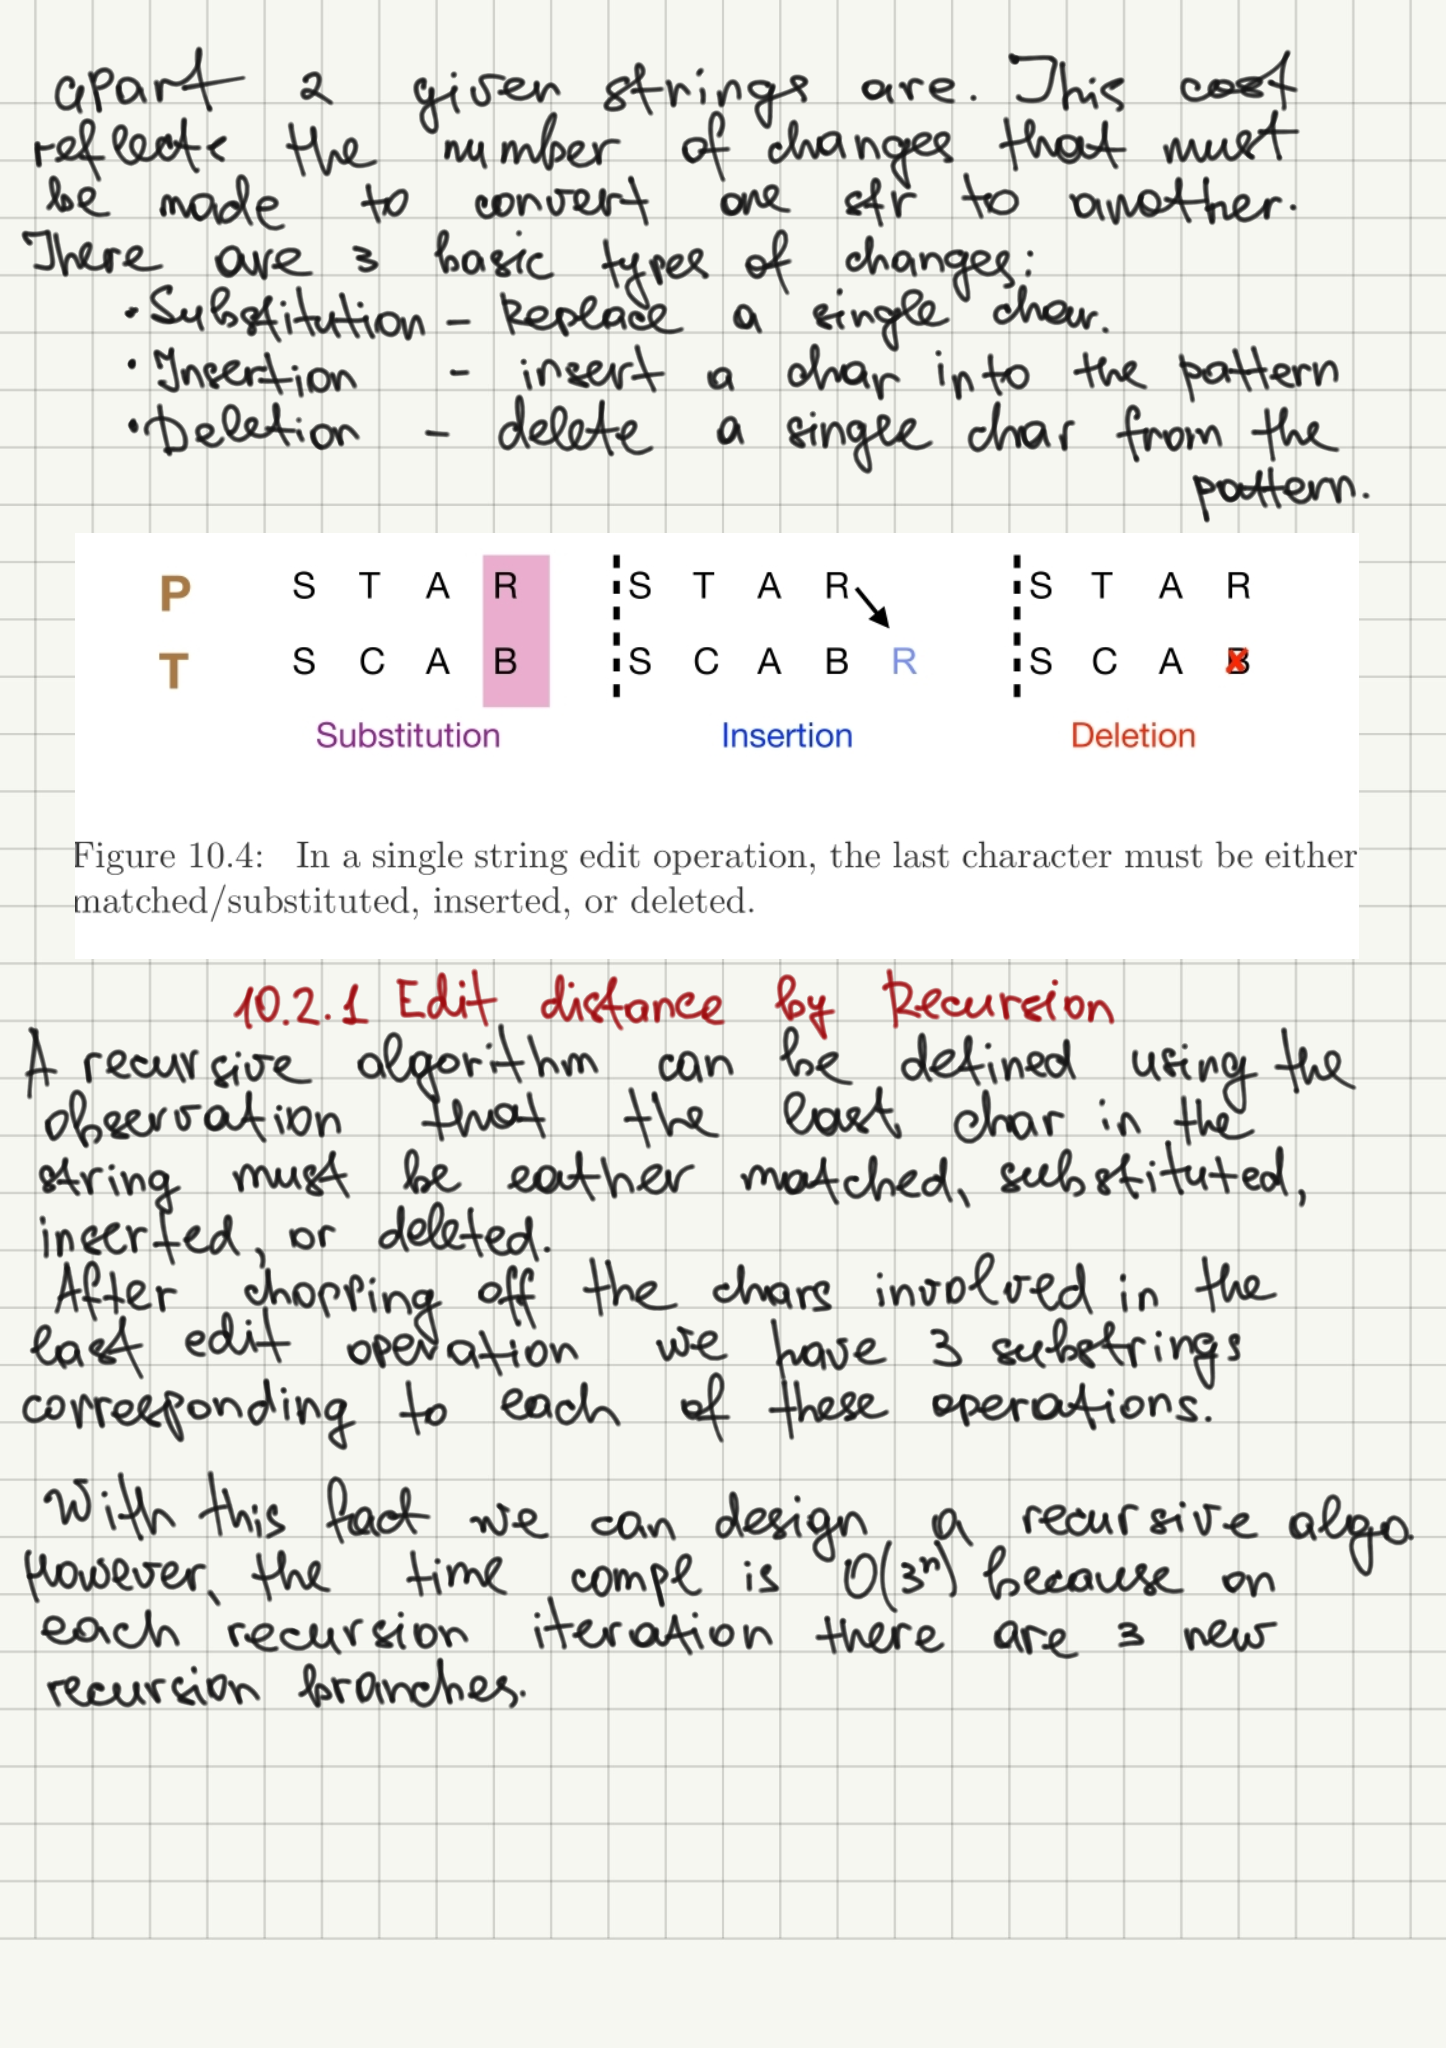 apart 2 given strings are. This cost
reflects the number of changes that must
be made to convert one str to another.
There are 3 basic types of changes:
• Substitution - Replace a single char.
• Insertion - insert a char into the pattern
• Deletion - delete a single char from the
pattern.
P S T A R S T A R S T A R
T S C A B S C A B R S C A B
Substitution Insertion Deletion
Figure 10.4: In a single string edit operation, the last character must be either
matched/substituted, inserted, or deleted.
10.2.1 Edit distance by Recursion
A recursive algorithm can be defined using the
observation that the last char in the
string must be eather matched, substituted,
inserted, or deleted.
After chopping off the chars involved in the
last edit operation we have 3 substrings
corresponding to each of these operations.
With this fact we can design a recursive algo.
However, the time compl is O(3ⁿ) because on
each recursion iteration there are 3 new
recursion branches.